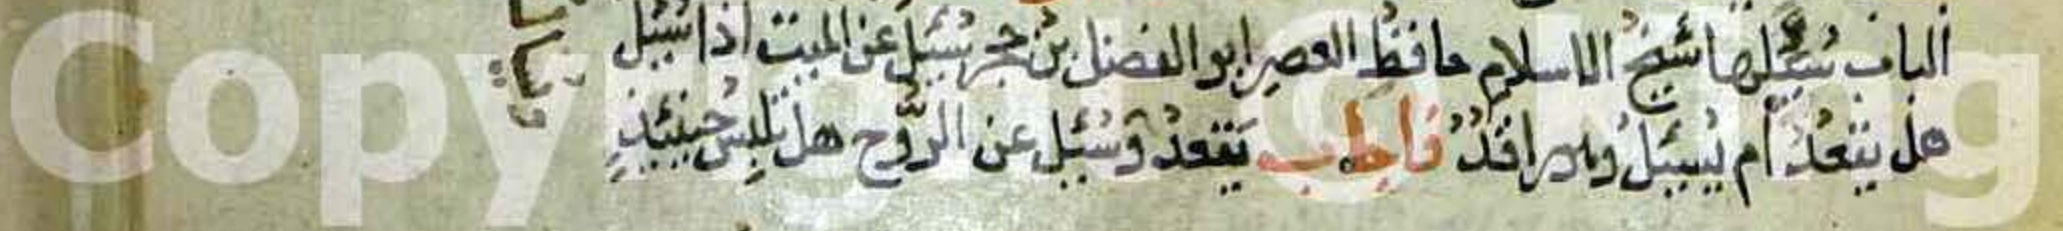 الباب سُئِلَ عنها شيخُ الاسلام حافظُ العصرِ ابو الفضل بنُ حجر سُئِلَ عن الميت اذا سُئِلَ
هل يقعدُ أم يُسئلُ وهو راقدٌ فاجاب يقعدُ وسُئِلَ عن الرُّوح هل تلبسُ حينئذٍ